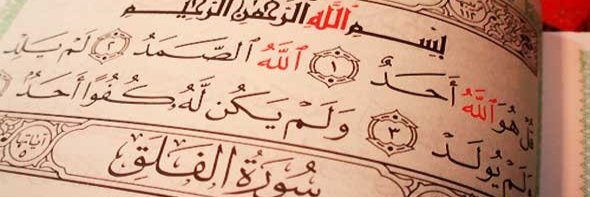 بِسْمِ ٱللَّهِ ٱلرَّحْمَٰنِ ٱلرَّحِيمِ
قُلْ هُوَ ٱللَّهُ أَحَدٌ ١ ٱللَّهُ ٱلصَّمَدُ ٢ لَمْ يَلِدْ
وَلَمْ يُولَدْ ٣ وَلَمْ يَكُن لَّهُ كُفُوًا أَحَدٌ
سُورَةُ الفَلَقِ
آياتها ٥